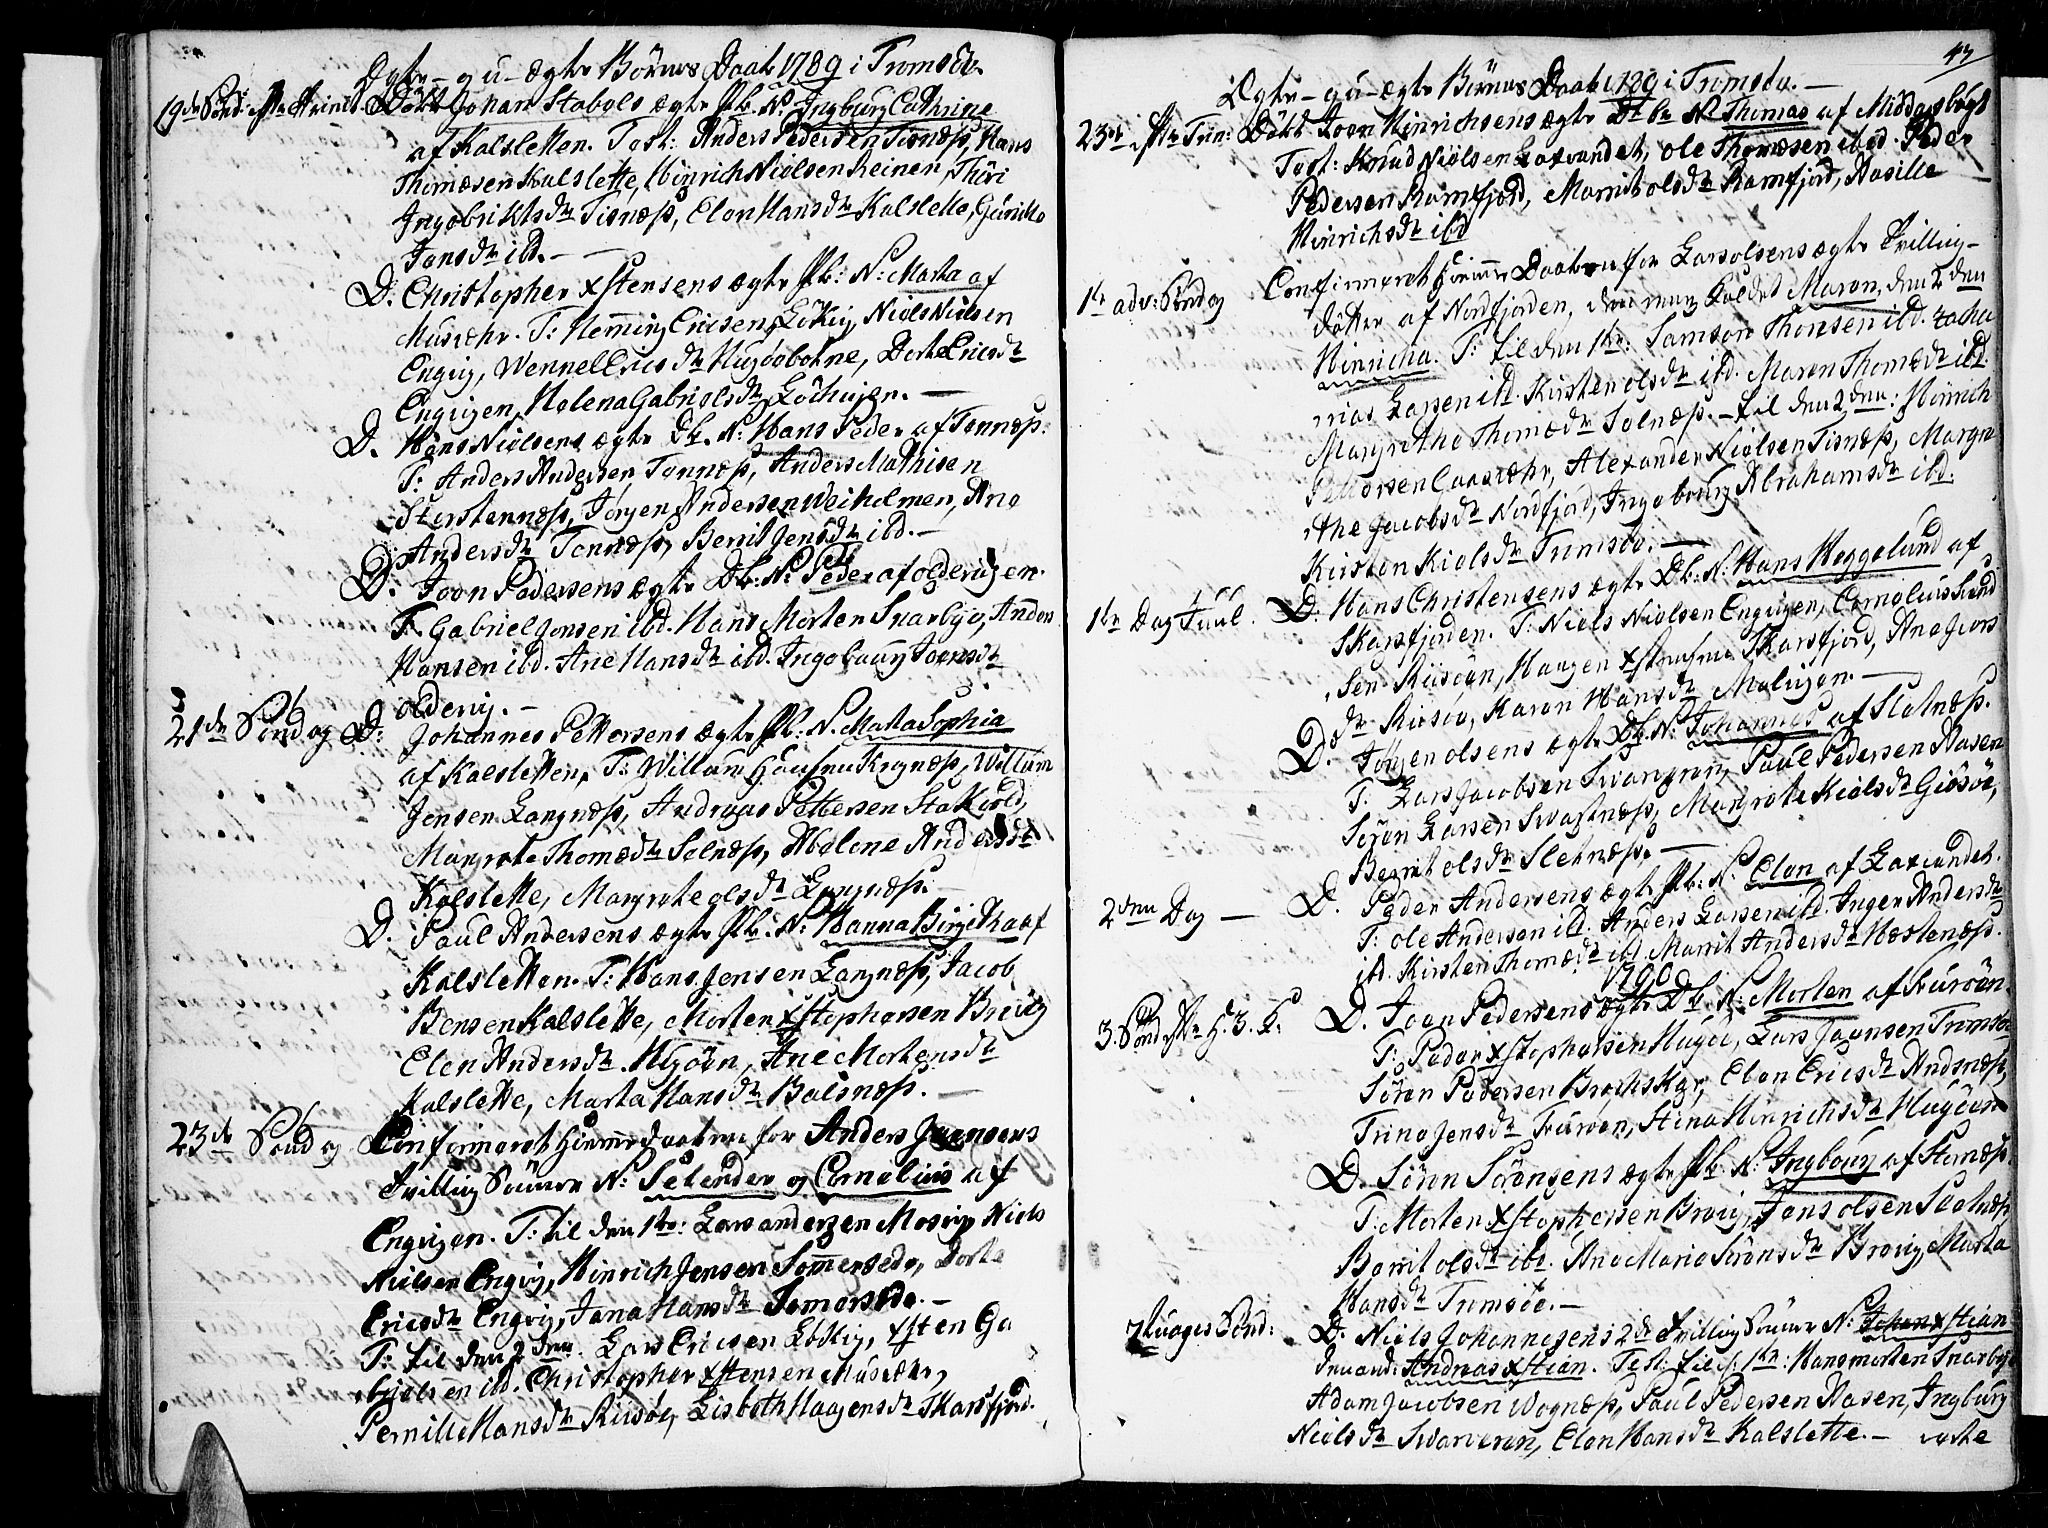 Ægte- og u-Ægte Börnes Daab 1789 i Tromsöe.
19de Sönd: Döbt Johan Stabels ægte Pb: N: Ingburg Cathrine
af Kalsletten. Test: Anders Pedersen Tisnæss, Hans
Thomæsen Kalslette, Hinrich Nielsen Reinen, Thüri
Ingebrikts dtr Tisnæss, Elen Hans dtr Kalslette,
Jens dtr ibd. —
D. Christopher Xstensens ægte Pb: N: Marta af
Musvehr. T: Hemmig Ericsen Lökvig, Niels Nielsen
Engvig, Wennel Erics dtr Husöebotne, Dorte Erics dtr
Engvigen, Helena Gabriels dtr Lökvigen. —
D. Hans Nielsens ægte Db. N: Hans Peder af Tonnæss.
T: Anders Andersen Tonnæss, Anders Mathisen
Storstennæss, Jörgen Andersen Weiholmen, Ane
Anders dtr Tonnæss, Berrit Jens dtr ibd. —
D. Joen Pedersens ægte Db: N: Peder af oldervigen.
T: Gabriel Jensen ibd. Hans Morten Snarbye, Anders
Hansen ibd. Ane Hans dtr ibd. Ingebaarg Joens dtr
oldervig. —
21de Söndag D: Johannes Pettersens ægte Pb: N. Marta Sophia
af Kalsletten, T: Willum Krognæss, Willum
Jensen Langnæss, Andreas Pettersen Stakvold,
Margrete Thomæ dtr Solnæss, Abelone Anders dtr
Kalslette, Margrete ols dtr Langnæss. —
D. Paul Andersens ægte Pb: N: Hanna Birgitta af
Kalsletten. T: Hans Jensen Langnæss, Jacob
Bensen Kalslette, Morten Xstophersen Brevig
Elen Anders dtr, Ane Mortens dtr
Kalslette, Marta Hans dtr Balsnæss. —
23de Söndag Confirmeret Hiemmedaaben for Anders Joensens
Tvilling Sönner N: Selender og Cornelius af
Engvigen. T: til den 1te: Lars andersen Mosvig, Niels
Nielsen Engvig, Hinrich Jensen Sommersede, Dorte
Erics dtr Engvig, Jena Hans dtr Somersede. —
T: til den 2den. Lars Ericsen Lökvig, Xsten Ga
brielsen ibd. Christopher Xstensen Musvær,
Pernille Hans dtr Risöe, Lisbeth Haagens dtr Skarsfjord.
47
Ægte- og u-ægte Börnes Daab 1789 i Tromsöe. —
23de p: Trin: Döbt Joen Hinrichsens ægte Db N: Thomas af Middagsbugt
Test: Knud Nielsen Laxvandet, ole Thomæsen ibd. Peder
Pedersen Ramfjord, Marrit ols dtr Ramfjord, Hasille
Hinrichs dtr ibd
1te adv: Söndag Confirmeret Hiemme Daaben for Lars olsens ægte Tvilling-
döttre af Nordfjorden, den eene kaldet Maren, den 2den
Hinricha. T: til den 1te: Samson Thonsen ibd. Zacha
rias Larsen ibd. Kirsten ols dtr ibd. Maren Thomæ dtr ibd.
Margrethe Thomæ dtr Solnæss. — til den 2den: Hinrich
Pettersen, Alexander Nielsen Tisnæss, Margre
the Jacobs dtr Nordfjord, Ingebourg Abrahams dtr ibd.
Kirsten Kiels dtr Tromsöe. —
1te Dag Juul. D. Hans Christensens ægte Db: N: Hans Heggelund af
Skarsfjorden. T: Niels Nielsen Engvigen, Cornelius
sen Riisöen, Haagen Skarsfjord, Ane
dtr Riisöe, Karen Hans dtr Malvigen. —
D: Jörgen olsens ægte Db: N: Johannes af Sletnæss.
T: Lars Jacobsen Svarveren, Paul Pedersen Nasen
Sören Larsen, Margrete Kiels dtr
Berrit ols dtr Sletnæss. —
2den Dag — D. Peder Andersens ægte Pb: N: Elen af Laxvandet.
T: ole Andersen ibd. Anders Larsen ibd. Inger Anders dtr
ibd. Kirsten Thomæ dtr ibd. Marrit Anders dtr Hestenæss.
1790
3. Sönd: p: H. 3. K: D. Joen Pedersens ægte Db: N: Morten af
T: Peder Xstophersen, Lars Joensen Tromsöe
Sören Pedersen, Elen Erics dtr Andsnæss,
Trine Jens dtr, Stina Hinrichs dtr
D. Sören Sörensens ægte Pb: N: Ingbourg af
T: Morten Xstophersen Brevig, Jens olsen,
Berrit ols dtr ibd. Ane Marie Sörens dtr Brevig, Marta
Hans dtr Tromsöe. —
D. Niels Johannesens 2de Tvilling Sönner N: Johan Xstian
den and: Andreas Xstian. Test: til d: 1te: Hans morten Snarbye
Adam Jacobsen Vognæss, Paul Pedersen Nasen, Ingburg
Niels dtr Svarveren, Elen Hans dtr Kalslette. —